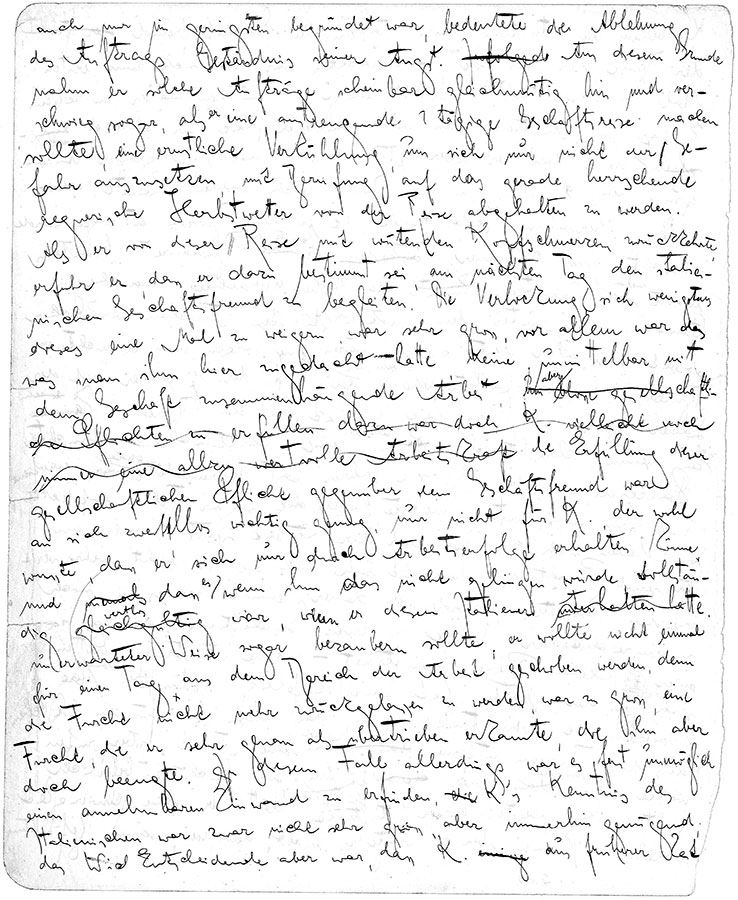 auch nur im geringsten begründet war, bedeutete die Ablehnung
des Auftrags Geständnis seiner Angst. Aus diesem Grunde
nahm er solche Aufträge scheinbar gleichmütig hin und ver-
schwieg sogar, als er eine anstrengende 2 tägige Geschäftsreise machen
sollte eine ernstliche Verkühlung um sich nur nicht der Ge-
fahr auszusetzen, mit Berufung auf das gerade herrschende
regnerische Herbstwetter von der Reise abgehalten zu werden.
Als er von dieser Reise mit wütenden Kopfschmerzen zurückkehrte
erfuhr er das er dazu bestimmt sei am nächsten Tag den italie-
nischen Geschäftsfreund zu begleiten. Die Verlockung sich wenigstens
dieses eine Mal zu weigern war sehr gros, vor allem war das
was man ihm hier zugedacht hatte keine unmittelbar mit
dem Geschäft zusammenhängende Arbeit, aber gesellschaftli-
che Pflichten zu erfüllen dazu war doch K. vielleicht noch
immer eine allzu wertvolle Arbeitskraft die Erfüllung dieser
gesellschaftlichen Pflicht gegenüber dem Geschäftsfreund war
an sich zweifellos wichtig genug, nur nicht für K., der wohl
wusste, dass er sich nur durch Arbeitserfolge erhalten könne
und dass es, wenn ihm das nicht gelingen würde vollstän-
dig wertlos war, wenn er diesen Italiener unterhalten hatte.
unerwarteter Weise sogar bezaubern sollte, er wollte nicht einmal
für einen Tag aus dem Bereich der Arbeit geschoben werden, denn
die Furcht nicht mehr zurückgelassen zu werden, war zu gros, eine
Furcht, die er sehr genau als übertrieben erkannte, die ihn aber
doch beengte. In diesem Falle allerdings war es fast unmöglich
einen annehmbaren Einwand zu erfinden, K's Kenntnis des
Italienischen war zwar nicht sehr gros aber immerhin genügend.
das Entscheidende aber war, das K. aus früherer Zeit